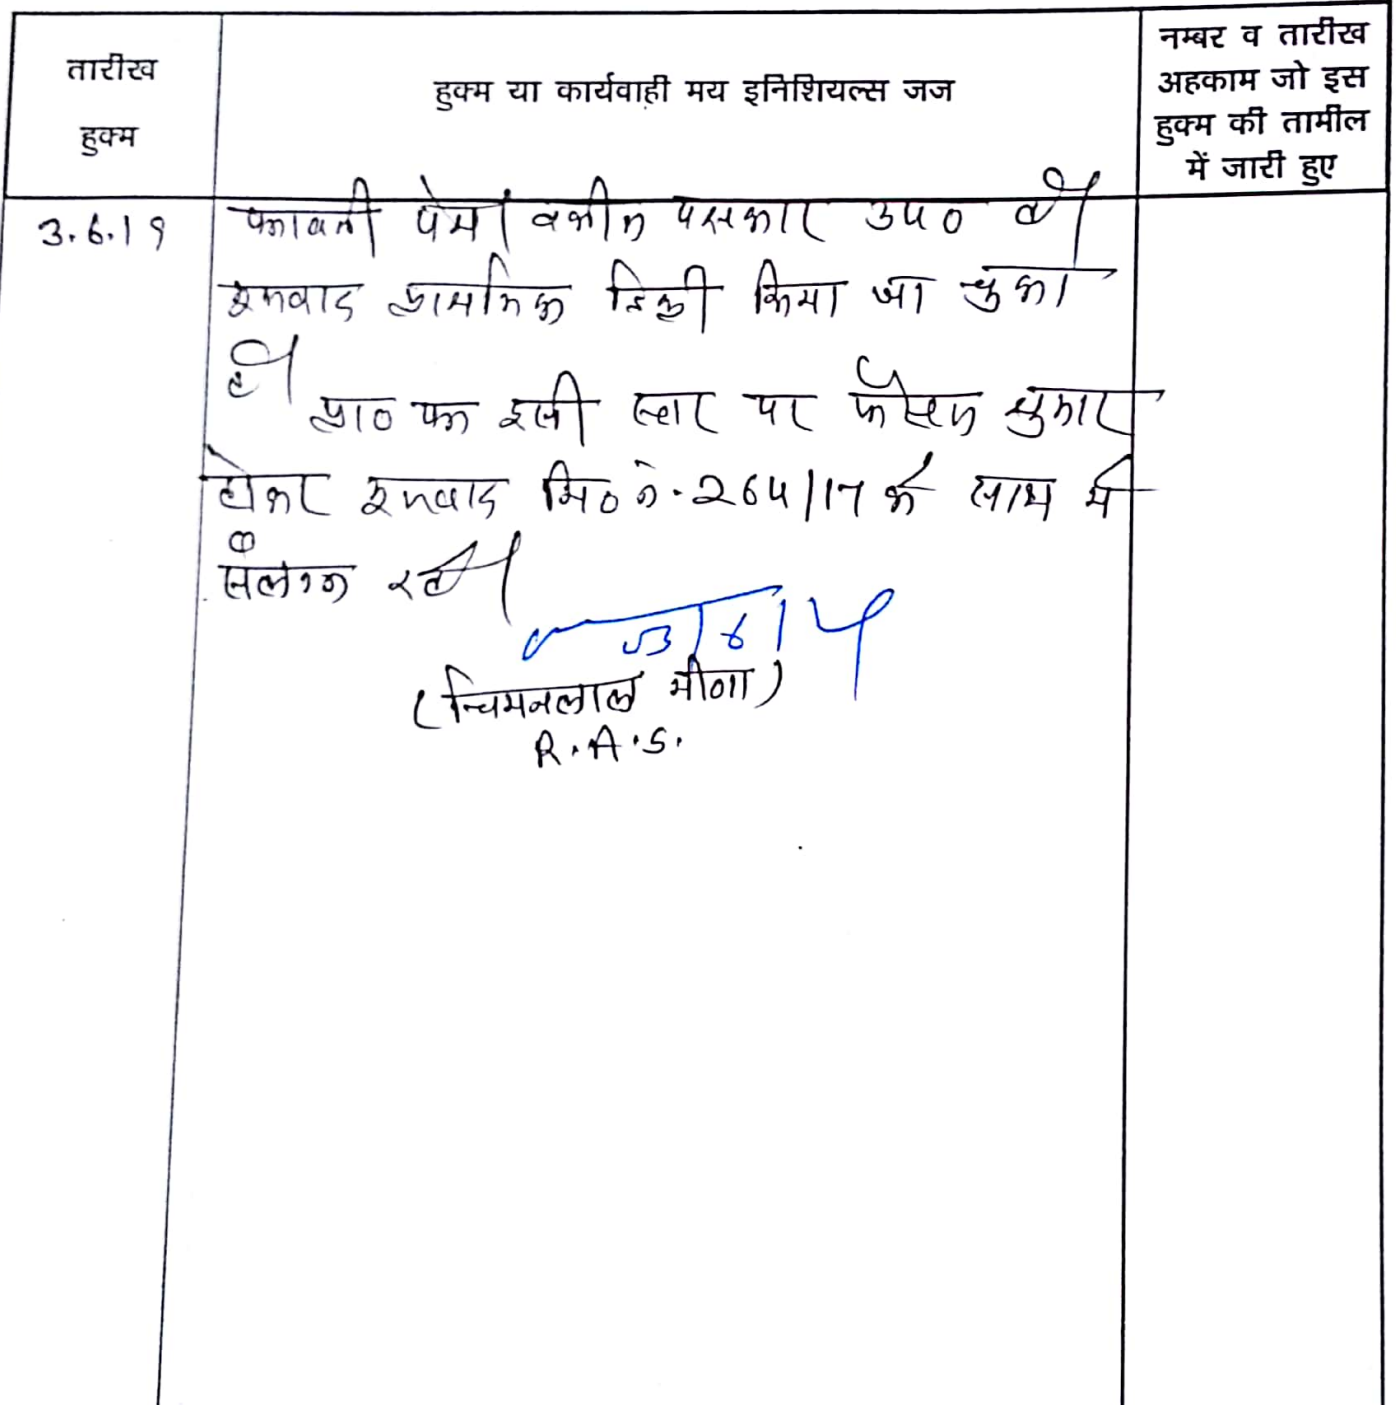 तारीख
हुक्म
हुक्म या कार्यवाही मय इनिशियल्स जज
नम्बर व तारीख
अहकाम जो इस
हुक्म की तामील
में जारी हुए
3.6.19
पत्रावली पेश। वकील पक्षकार उप० है।
मूलवाद प्राथमिक डिक्री किया जा चुका
है।
प्रा० पत्र इसी स्तर पर फैसल शुमार
होकर मूलवाद मि० नं. 264/17 के साथ में
संलग्न रहे।
(चिमनलाल मीणा)
R.A.S.